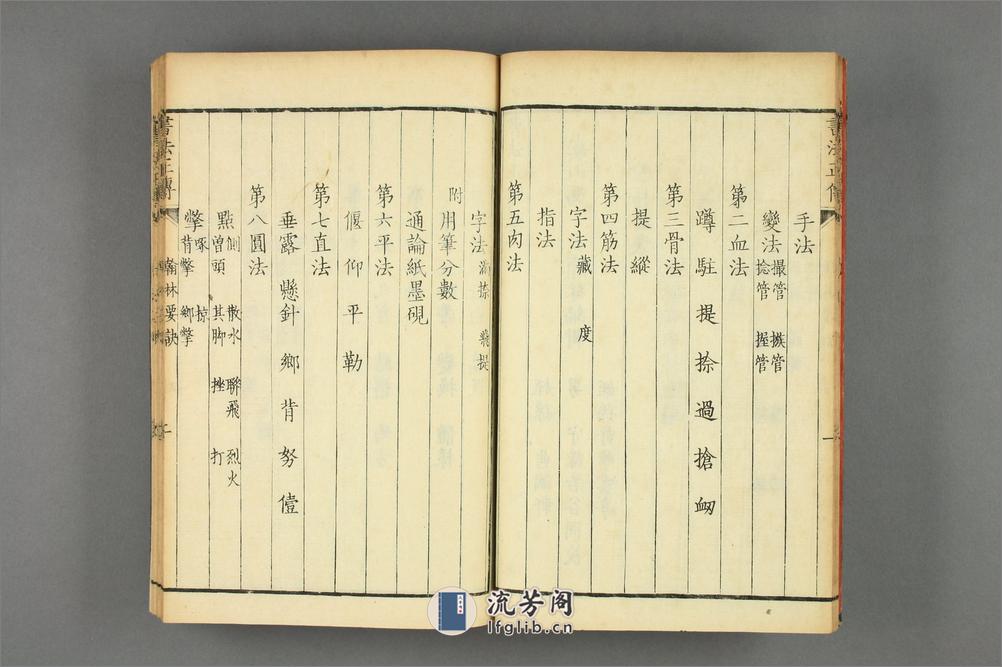 書法正傳
手法
變法 撮管 搩管 捻管 握管
第二血法
蹲駐提捺過搶衂
第三骨法
提縱
第四筋法
字法 藏 度
指法
第五肉法
字法 滿捺 飛提
附 用筆分數
通論紙墨硯
第六平法
偃仰平勒
第七直法
垂露 懸針 鄉背努僼
第八圓法
點 側 散水 聯飛 烈火 曾頭 其脚 挫 打
撆 啄 掠 背撆 鄉撆
書法正傳 翰林要訣
流芳阁
lfglib.cn